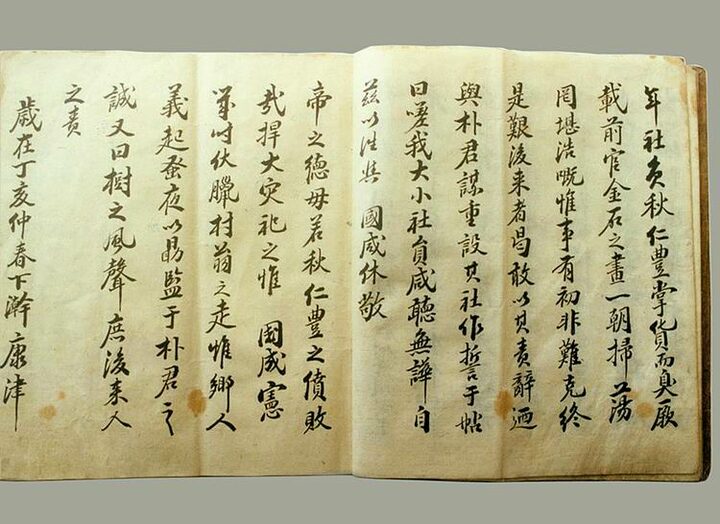 年社貟秋仁豊掌貨而臭厥
載前官金石之畫一朝掃蕩
罔堪浩嘅惟事有初非難克終
是艱後来者曷敢以其責辭迺
與朴君謀重設其社作誓于帖
曰嗟我大小社貟咸聽無譁自
玆以往其 國咸休敬
帝之德毋若秋仁豊之僨敗
哉捍大灾祀之惟 國咸憲
歲時伏臘村翁之走惟鄉人
義起蚤夜以易監于朴君之
誠又曰樹之風聲庶後来人
之責
歲在丁亥仲春下澣康津